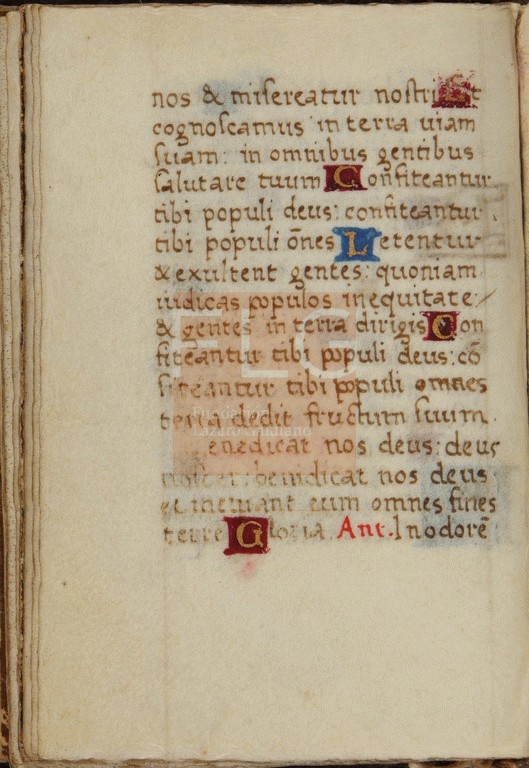 nos & misereatur nostri Et
cognoscamus in terra uiam
suam: in omnibus gentibus
salutare tuum Confiteantur
tibi populi deus: confiteantur
tibi populi oēs Letentur
& exultent gentes: quoniam
iudicas populos inequitate
& gentes in terra dirigis Con
fiteantur tibi populi deus: cō
fiteantur tibi populi omnes
terra dedit fructum suum
enedicat nos deus: deus
noster: benidicat nos deus
et metuant eum omnes fines
terre Gloria Ant. Inodorē
FLG
Fundación
Lázaro Galdiano